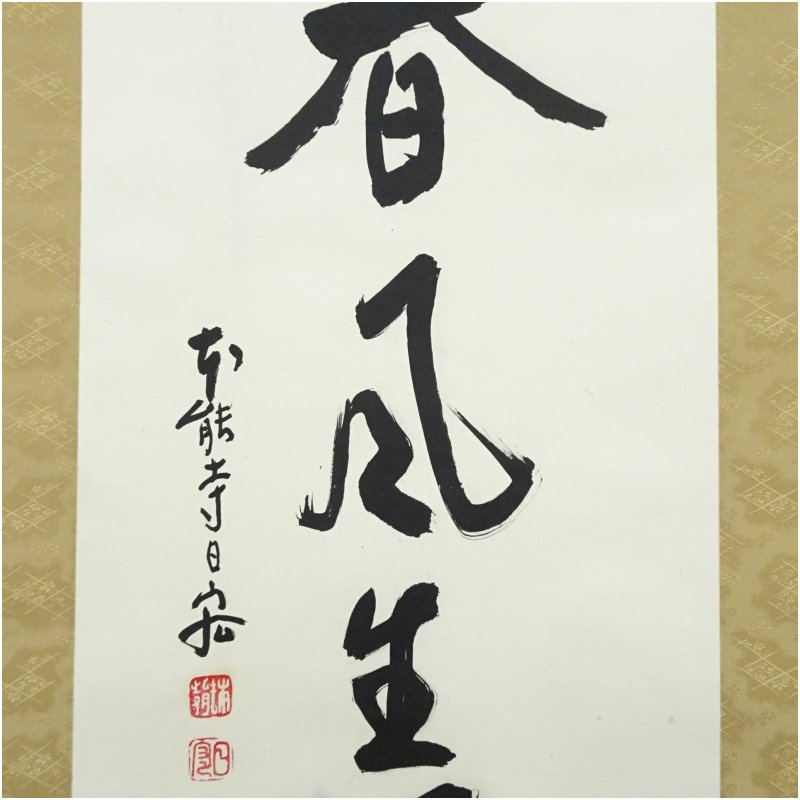 春風生
本能寺日宏